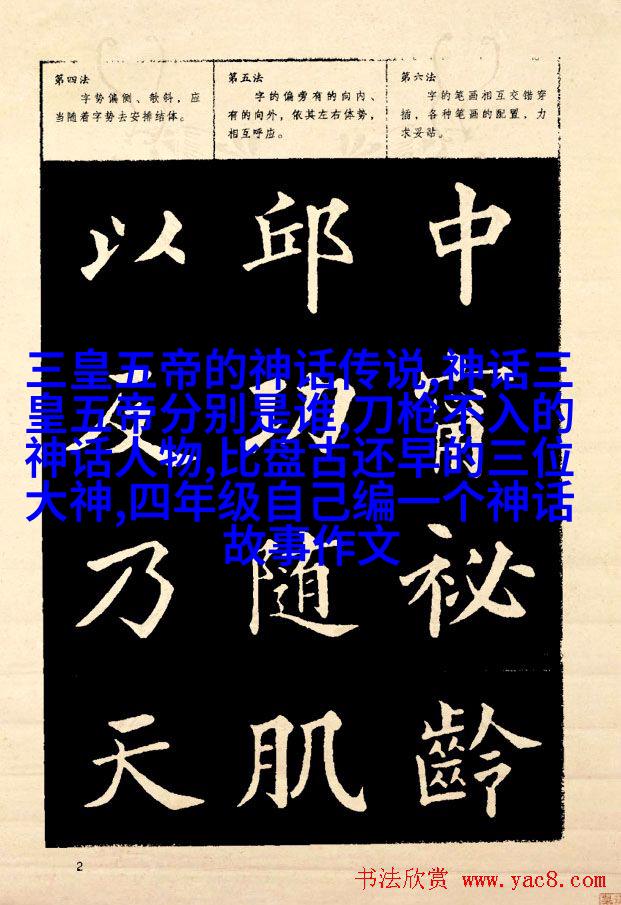 第四法
字势偏侧、欹斜，应
当随着字势去安排结体。
第五法
字的偏旁有的向内、
有的向外，依其左右体势，
相互呼应。
第六法
字的笔画相互交错穿
插，各种笔画的配置，力
求妥贴。
以 邱 中
及 功
乃 随 祕
天 肌 齡
三皇五帝的神话传说,神话三
皇五帝分别是谁,刀枪不入的
神话人物,比盘古还早的三位
大神,四年级自己编一个神话
故事作文
2
书法欣赏 www.yac8.com